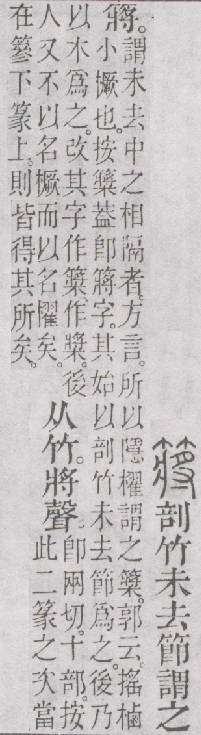 䉃剖竹未去節謂之
䉃。謂未去中之相隔者。方言。所以隱櫂謂之。郭云。搖樐
小橛也。按蓋卽䉃字。其始以剖竹未去節爲之。後乃
以木爲之。改其字作、作槳。後
人又不以名橛而以名櫂矣。
从竹。將聲。卽兩切。十部。按
此二篆之次當
在篸下篆上。則皆得其所矣。